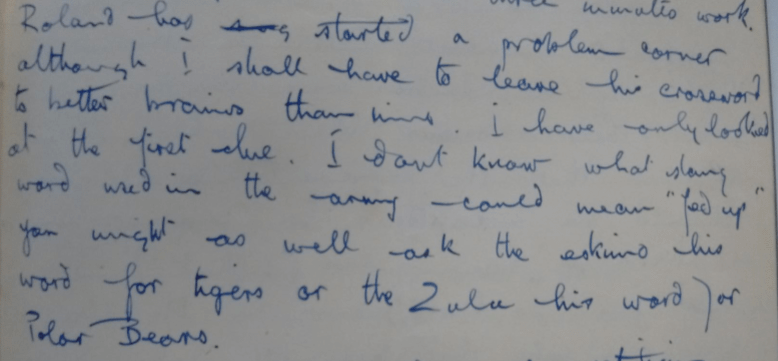 minutes work.
Roland has started a problem corner
although I shall have to leave his crossword
to better brains than mine. I have only looked
at the first clue. I dont know what slang
word used in the army could mean "fed up"
you might as well ask the eskimo his
word for tigers or the Zulu his word for
Polar Bears.